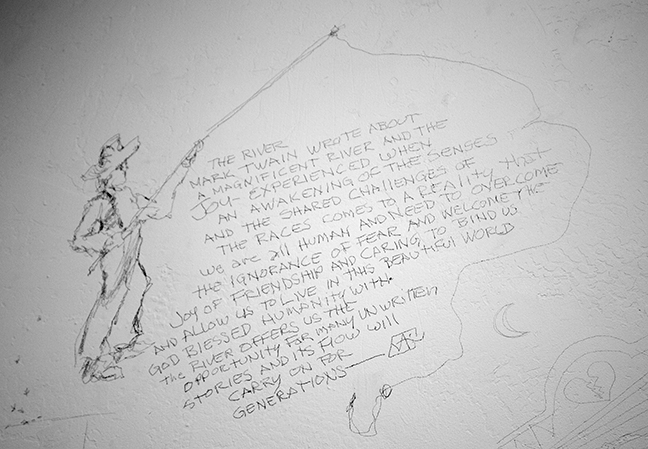 THE RIVER
MARK TWAIN WROTE ABOUT
A MAGNIFICENT RIVER AND THE
JOY - EXPERIENCED WHEN
AN AWAKENING OF THE SENSES
AND THE SHARED CHALLENGES OF
THE RACES COMES TO A REALITY THAT
WE ARE ALL HUMAN AND NEED TO OVERCOME
THE IGNORANCE OF FEAR AND WELCOME THE
JOY OF FRIENDSHIP AND CARING TO BIND US
AND ALLOW US TO LIVE IN THIS BEAUTIFUL WORLD
GOD BLESSED HUMANITY WITH.
THE RIVER OFFERS US THE
OPPORTUNITY FOR MANY UNWRITTEN
STORIES AND ITS FLOW WILL
CARRY ON FOR
GENERATIONS —